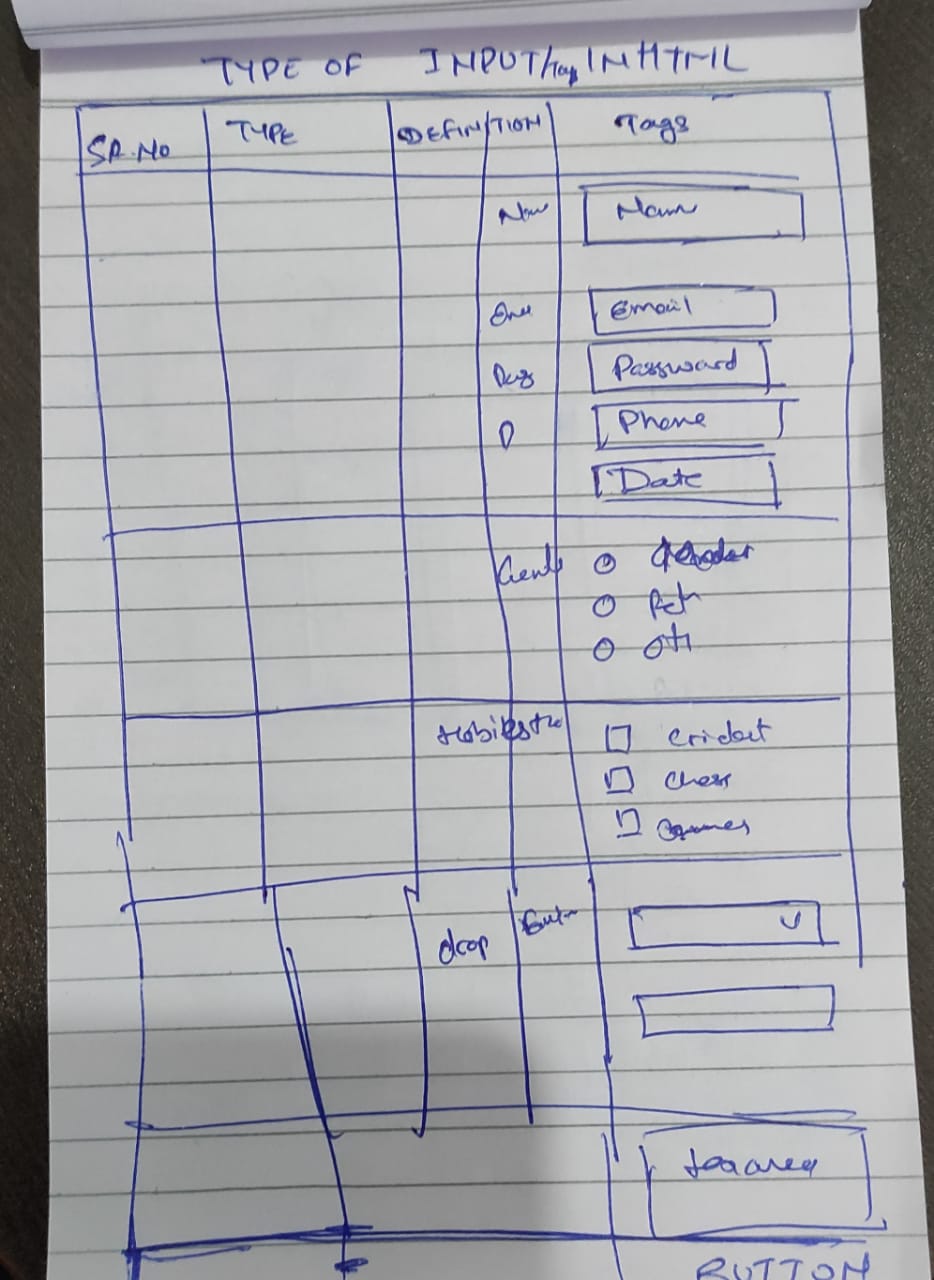 TYPE OF INPUT/Tag IN HTML
SR.NO TYPE DEFINITION Tags
Name Name
Email
Password
Phone
Date
Gend Gender
Oth
Cricket
Chess
Games
drop
BUTTON